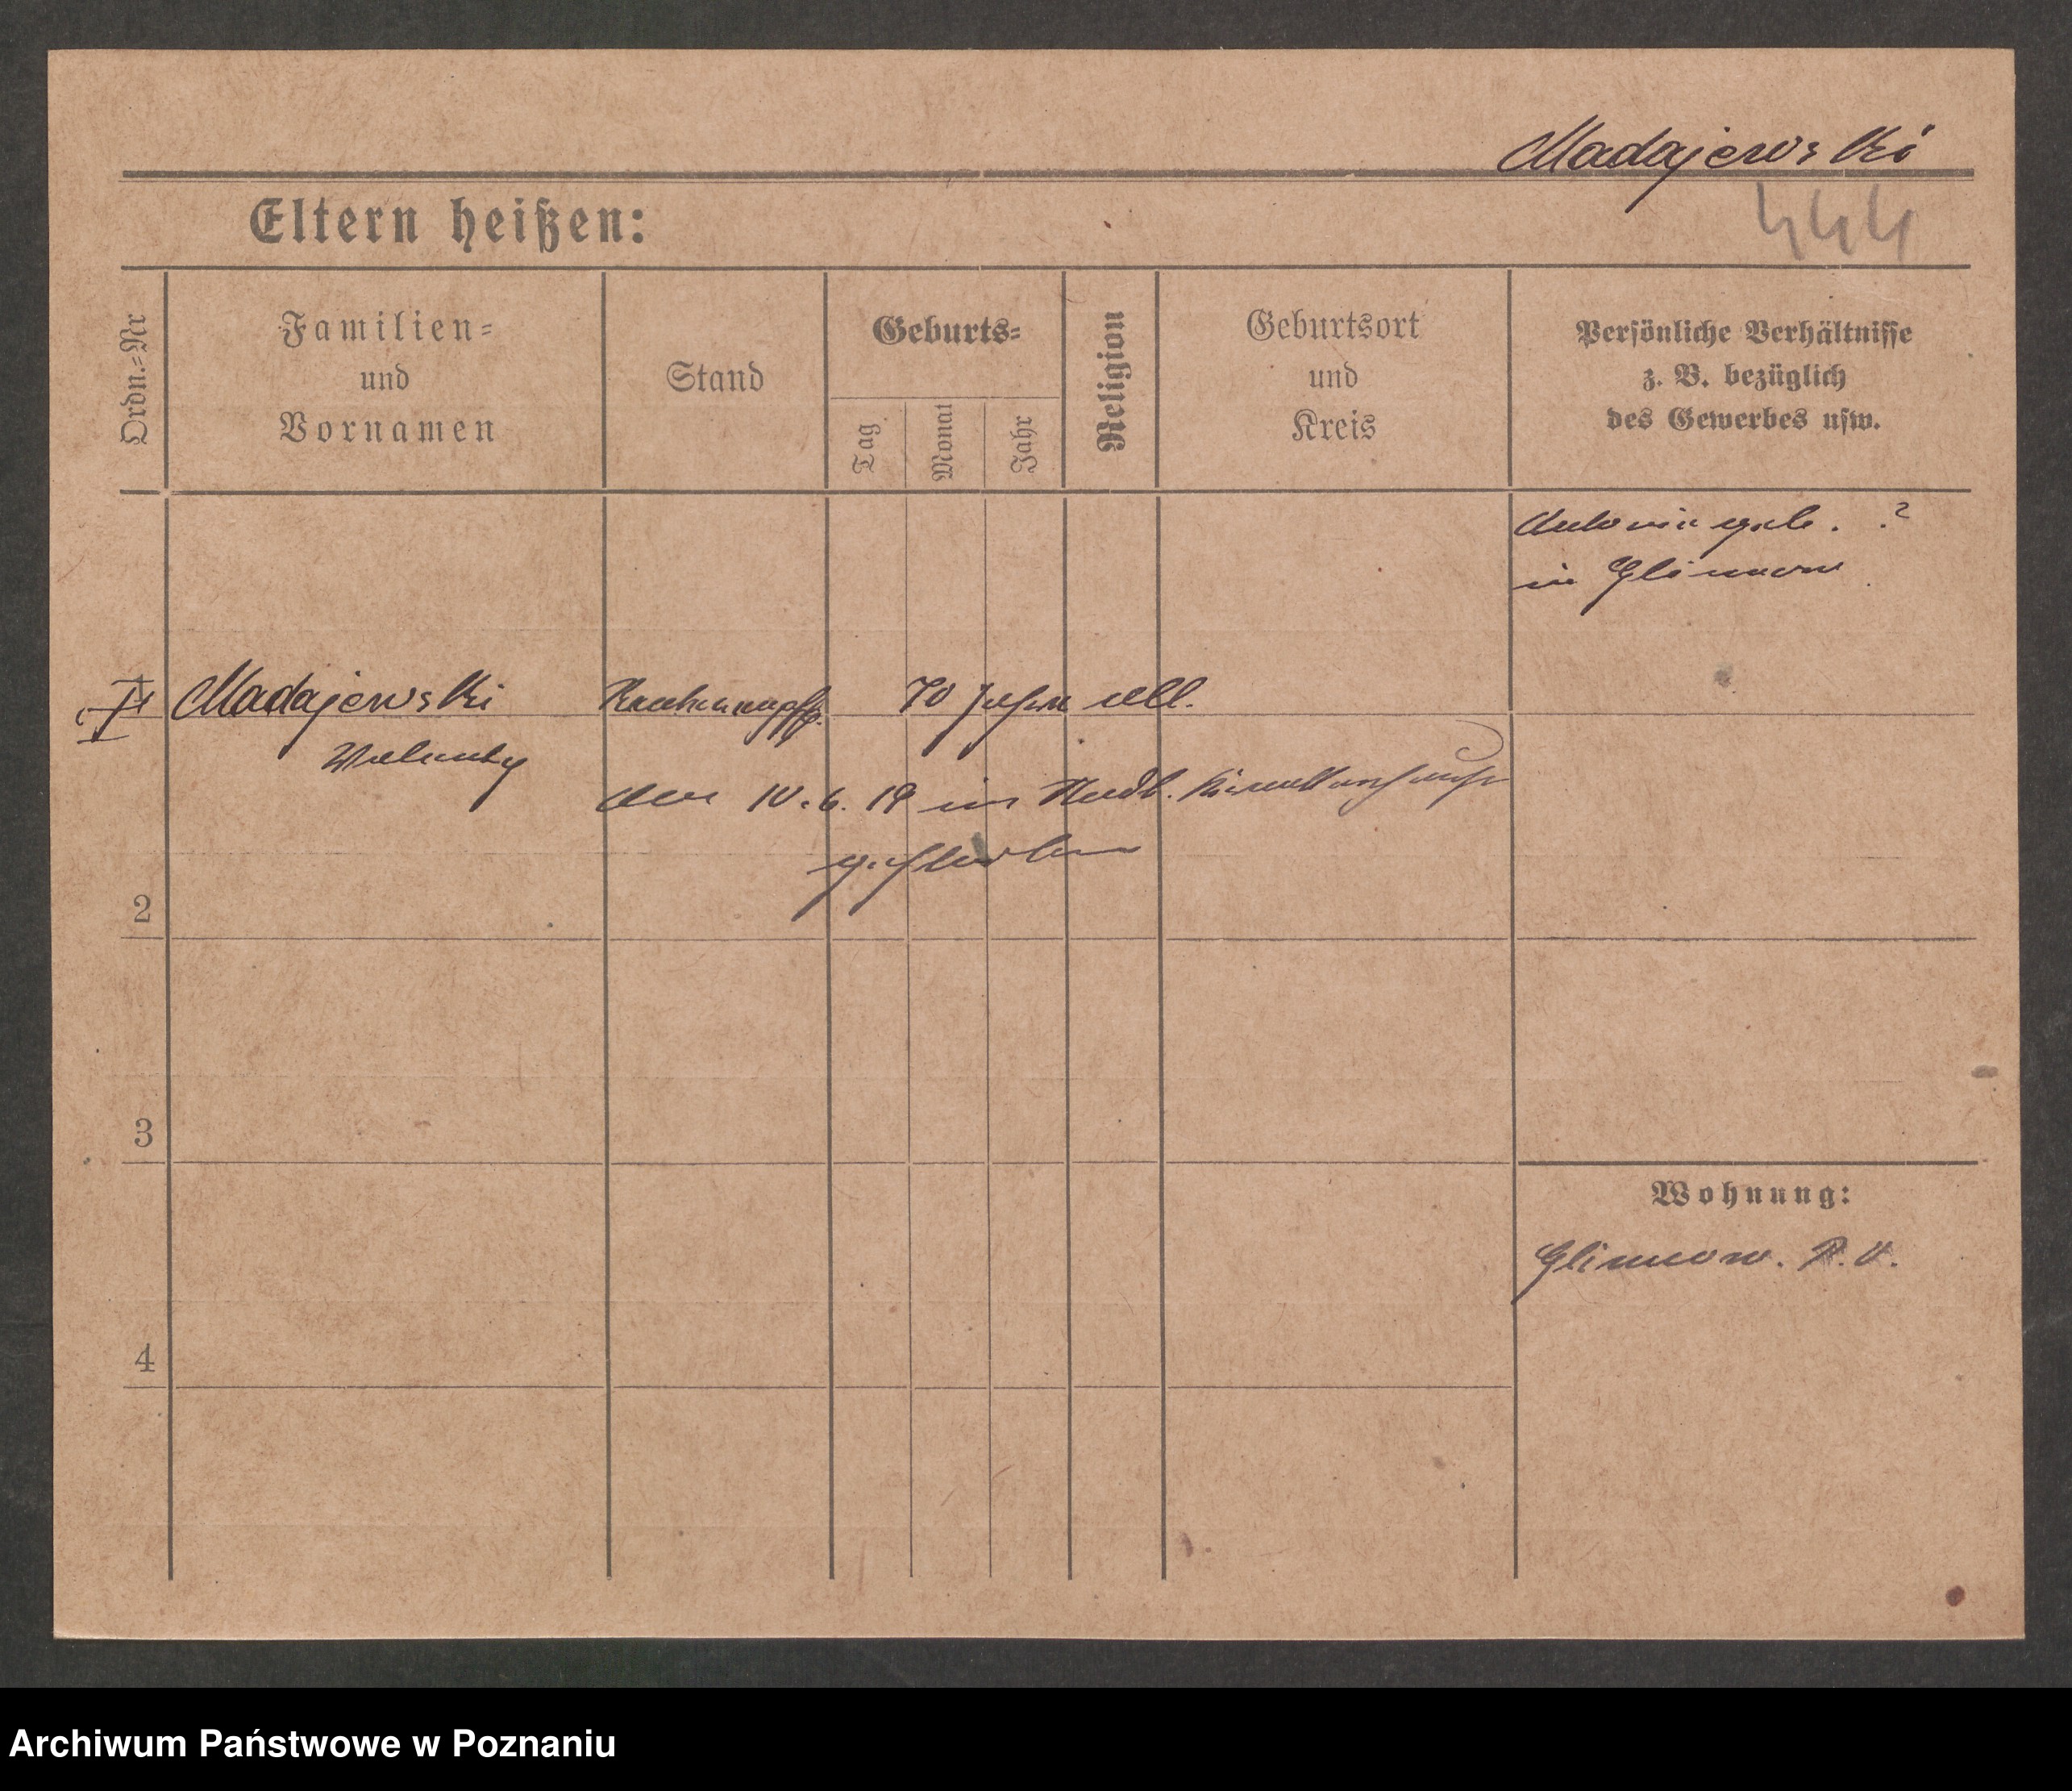 Madajewski
Eltern heißen:
444
Ordn.=Nr
Familien=
und
Vornamen
Stand
Geburts=
Tag
Monat
Jahr
Religion
Geburtsort
und
Kreis
Persönliche Verhältnisse
z. B. bezüglich
des Gewerbes usw.
Antonie geb. . ?
in Glinnow
Madajewski
70 Jahre alt.
Walenty
am 10. 6. 19 im Stadt. Krankenhause
gestorben
2
3
Wohnung:
Glinnow.
4
Archiwum Państwowe w Poznaniu